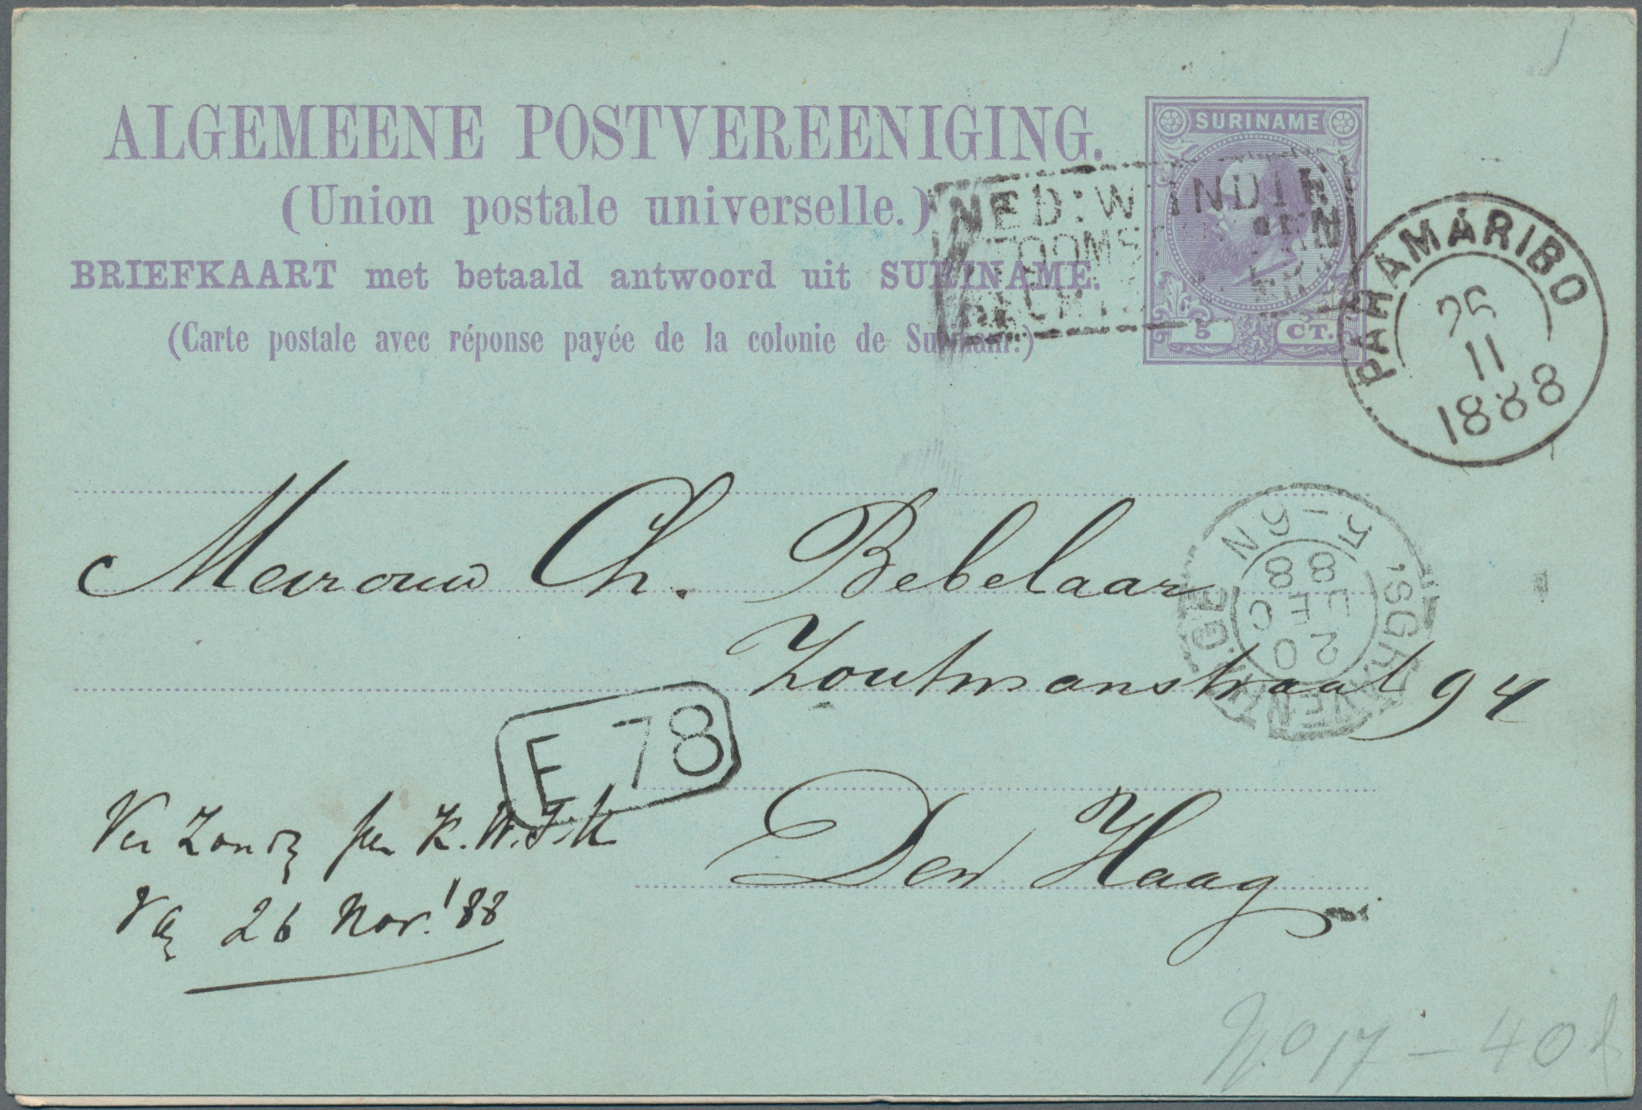 ALGEMEENE POSTVEREENIGING.
(Union postale universelle.)
BRIEFKAART met betaald antwoord uit SURINAME.
(Carte postale avec réponse payée de la colonie de Suriname.)
SURINAME
5 CT.
NED: W INDIE
PARAMARIBO
26
11
1888
Mevrouw Ch. Bebelaar
Zoutmanstraat 94
Den Haag
'SGRAVENHAGE
5-6N
88
DEC
20
E 78
per K.W.I.M.
26 Nov. '88
No 17 - 40